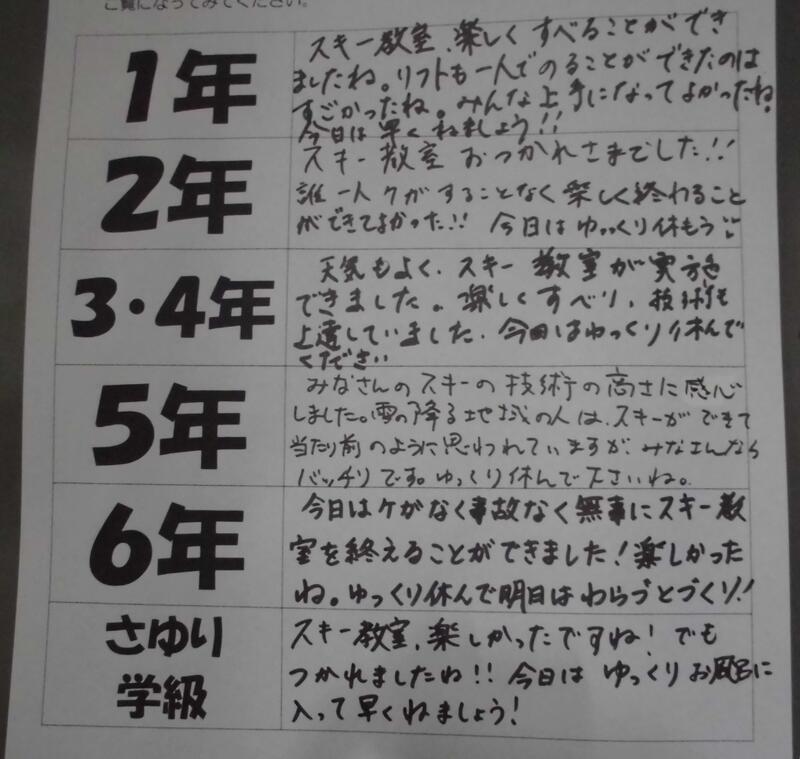 ご覧になってみてください。
1年
スキー教室、楽しくすべることができ
ましたね。リフトも一人でのることができたのは
すごかったね。みんな上手になってよかったね!
今日は早くねましょう!!
2年
スキー教室おつかれさまでした!!
誰一人ケガすることなく楽しく終わること
ができてよかった!! 今日はゆっくり休もう
3・4年
天気もよく、スキー教室が実施
できました。楽しくすべり、技術も
上達していました。今日はゆっくり休んで
ください
5年
みなさんのスキーの技術の高さに感心
しました。雪の降る地域の人は、スキーができて
当たり前のように思われていますが、みなさんなら
バッチリです。ゆっくり休んで下さいね。
6年
今日はケがなく事故なく無事にスキー教
室を終えることができました!楽しかった
ね。ゆっくり休んで明日はわらづとづくり!
さゆり
学級
スキー教室、楽しかったですね!でも
つかれましたね!!今日はゆっくりお風呂に
入って早くねましょう!